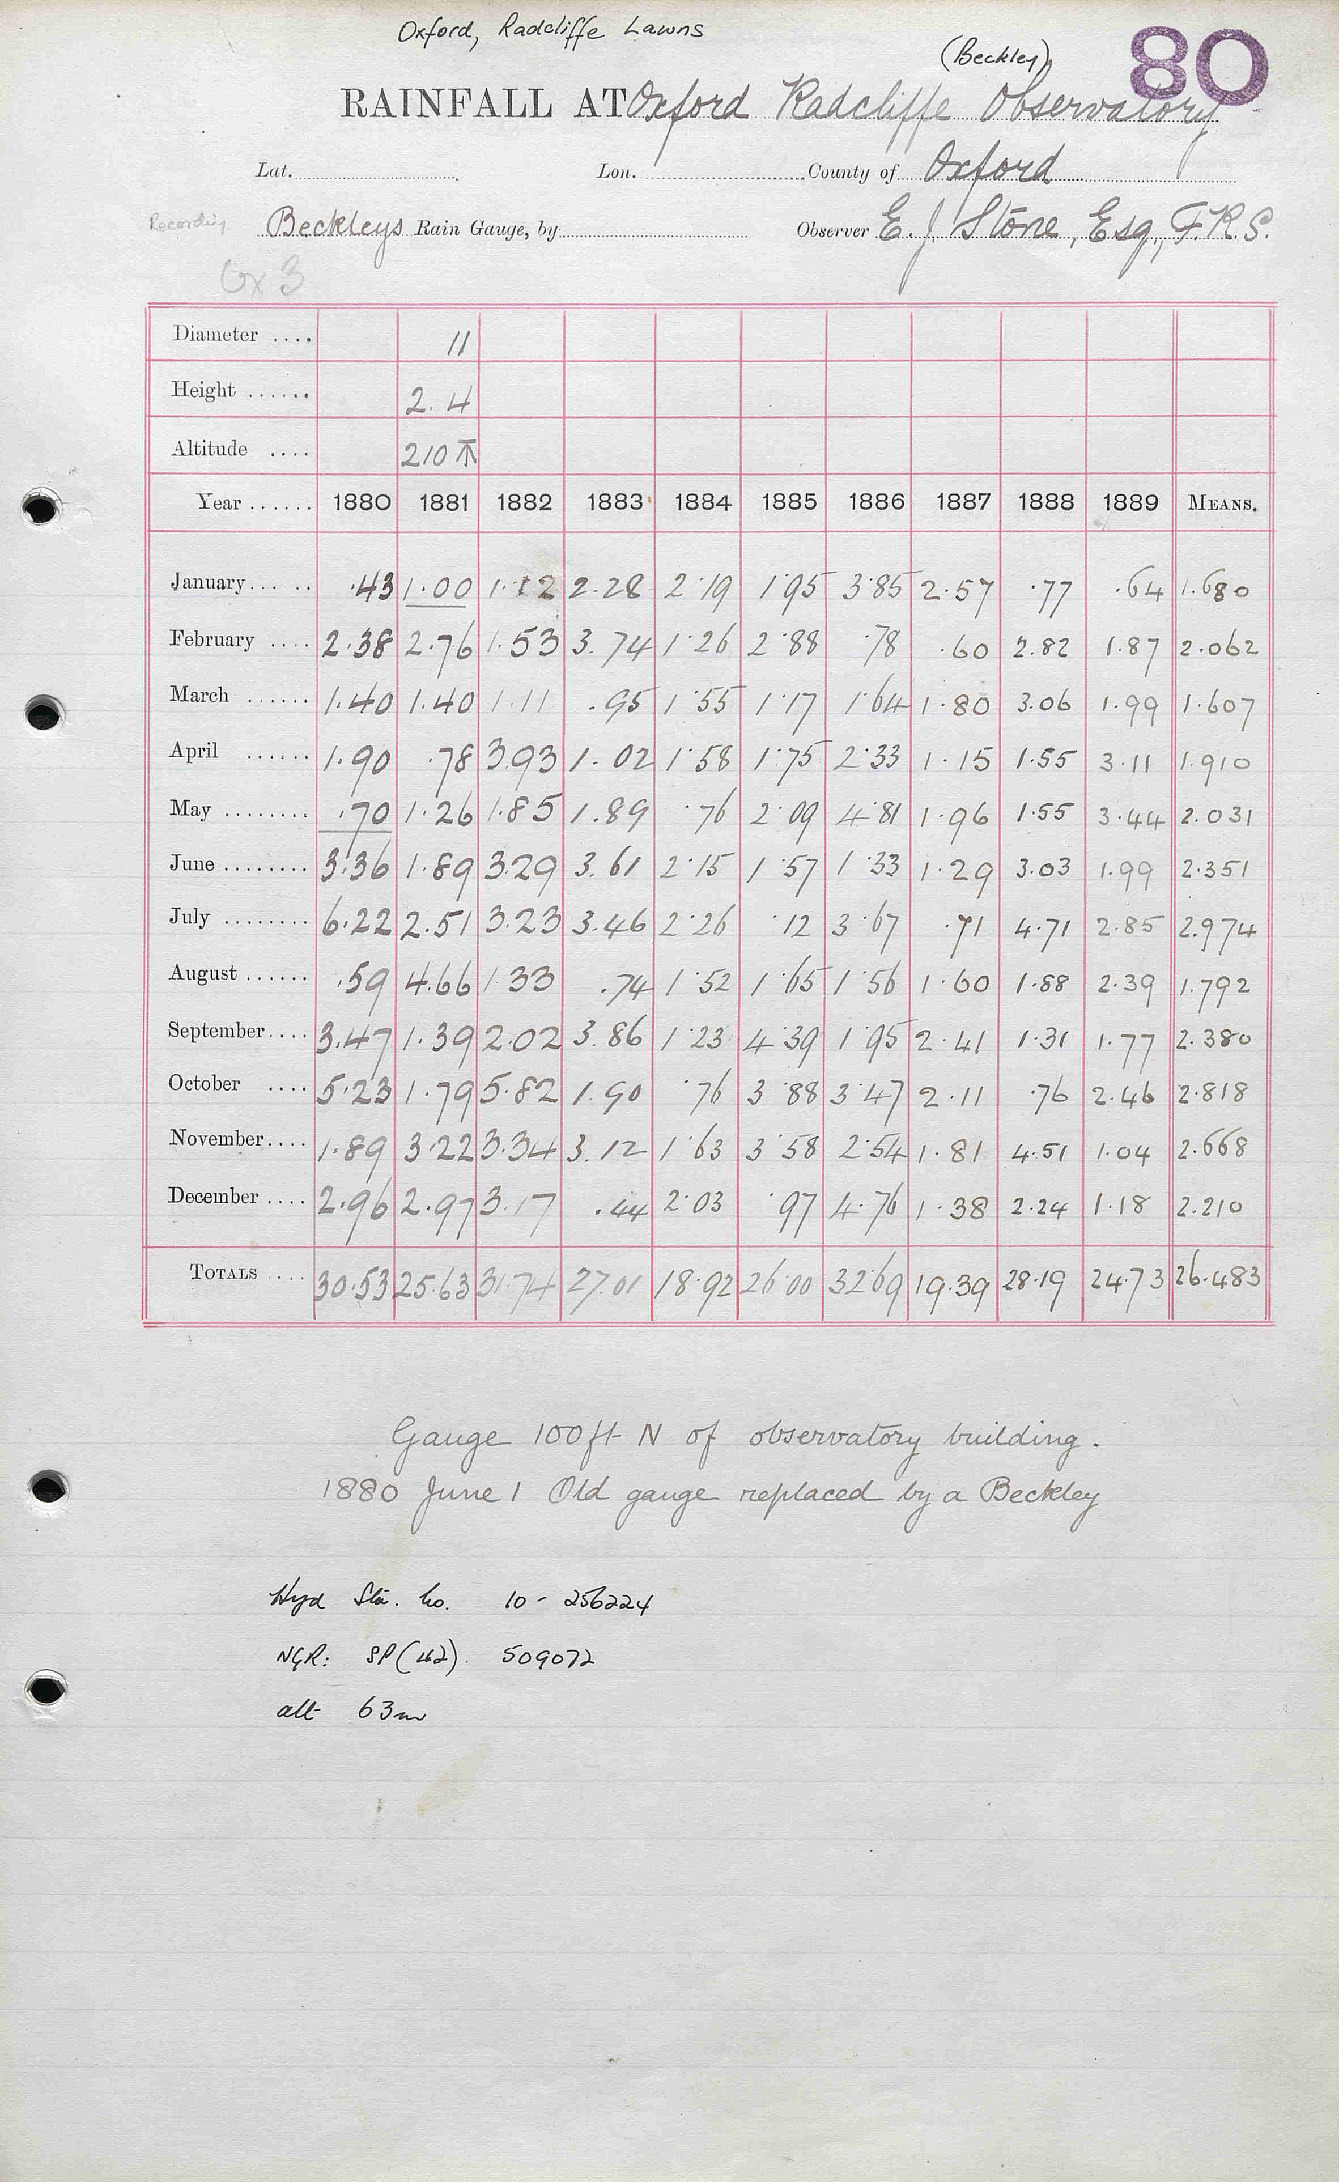 Oxford, Radcliffe Lawns
(Beckley) 80
RAINFALL AT Oxford Radcliffe Observatory
Lat. Lon. County of Oxford
Recording Beckleys Rain Gauge, by Observer E. J. Stone, Esq., F.R.S.
Ox 3
Diameter .... 11
Height ...... 2.4
Altitude .... 210
Year ...... 1880 1881 1882 1883 1884 1885 1886 1887 1888 1889 MEANS.
January...... .43 1.00 1.12 2.28 2.19 1.95 3.85 2.57 .77 .64 1.680
February .... 2.38 2.76 1.53 3.74 1.26 2.88 .78 .60 2.82 1.87 2.062
March ...... 1.40 1.40 1.11 .95 1.55 1.17 1.64 1.80 3.06 1.99 1.607
April ...... 1.90 .78 3.93 1.02 1.58 1.75 2.33 1.15 1.55 3.11 1.910
May ........ .70 1.26 1.85 1.89 .76 2.09 4.81 1.96 1.55 3.44 2.031
June ........ 3.36 1.89 3.29 3.61 2.15 1.57 1.33 1.29 3.03 1.99 2.351
July ........ 6.22 2.51 3.23 3.46 2.26 .12 3.67 .71 4.71 2.85 2.974
August ...... .59 4.66 1.33 .74 1.52 1.65 1.56 1.60 1.88 2.39 1.792
September.... 3.47 1.39 2.02 3.86 1.23 4.39 1.95 2.41 1.31 1.77 2.380
October .... 5.23 1.79 5.82 1.90 .76 3.88 3.47 2.11 .76 2.46 2.818
November.... 1.89 3.22 3.34 3.12 1.63 3.58 2.54 1.81 4.51 1.04 2.668
December .... 2.96 2.97 3.17 .44 2.03 .97 4.76 1.38 2.24 1.18 2.210
TOTALS .... 30.53 25.63 31.74 27.01 18.92 26.00 32.69 19.39 28.19 24.73 26.483
Gauge 100ft N of observatory building.
1880 June 1 Old gauge replaced by a Beckley
Hyd Sta. No. 10 - 256224
NGR: SP(42) 509072
alt 63m